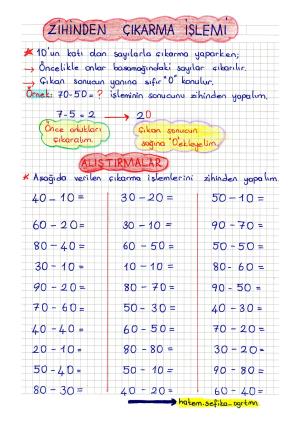 ZİHİNDEN ÇIKARMA İŞLEMİ
* 10'un katı olan sayılarla çıkarma yaparken;
→ Öncelikle onlar basamağındaki sayılar çıkarılır.
→ Çıkan sonucun yanına sıfır "0" konulur.
Örnek: 70-50=? işleminin sonucunu zihinden yapalım.
7-5=2 → 20
Önce onlukları çıkaralım.
Çıkan sonucun sağına "0" ekleyelim
ALIŞTIRMALAR
* Aşağıda verilen çıkarma işlemlerini zihinden yapalım.
40-10= 30-20= 50-10=
60-20= 30-10= 90-70=
80-40= 60-50= 50-50=
30-10= 10-10= 80-60=
90-20= 80-70= 90-50=
70-60= 50-30= 40-30=
40-40= 60-50= 70-20=
20-10= 80-80= 30-20=
50-40= 50-30= 90-90=
80-30= 40-20= 60-40=
hatem-sefika-ogrtmn